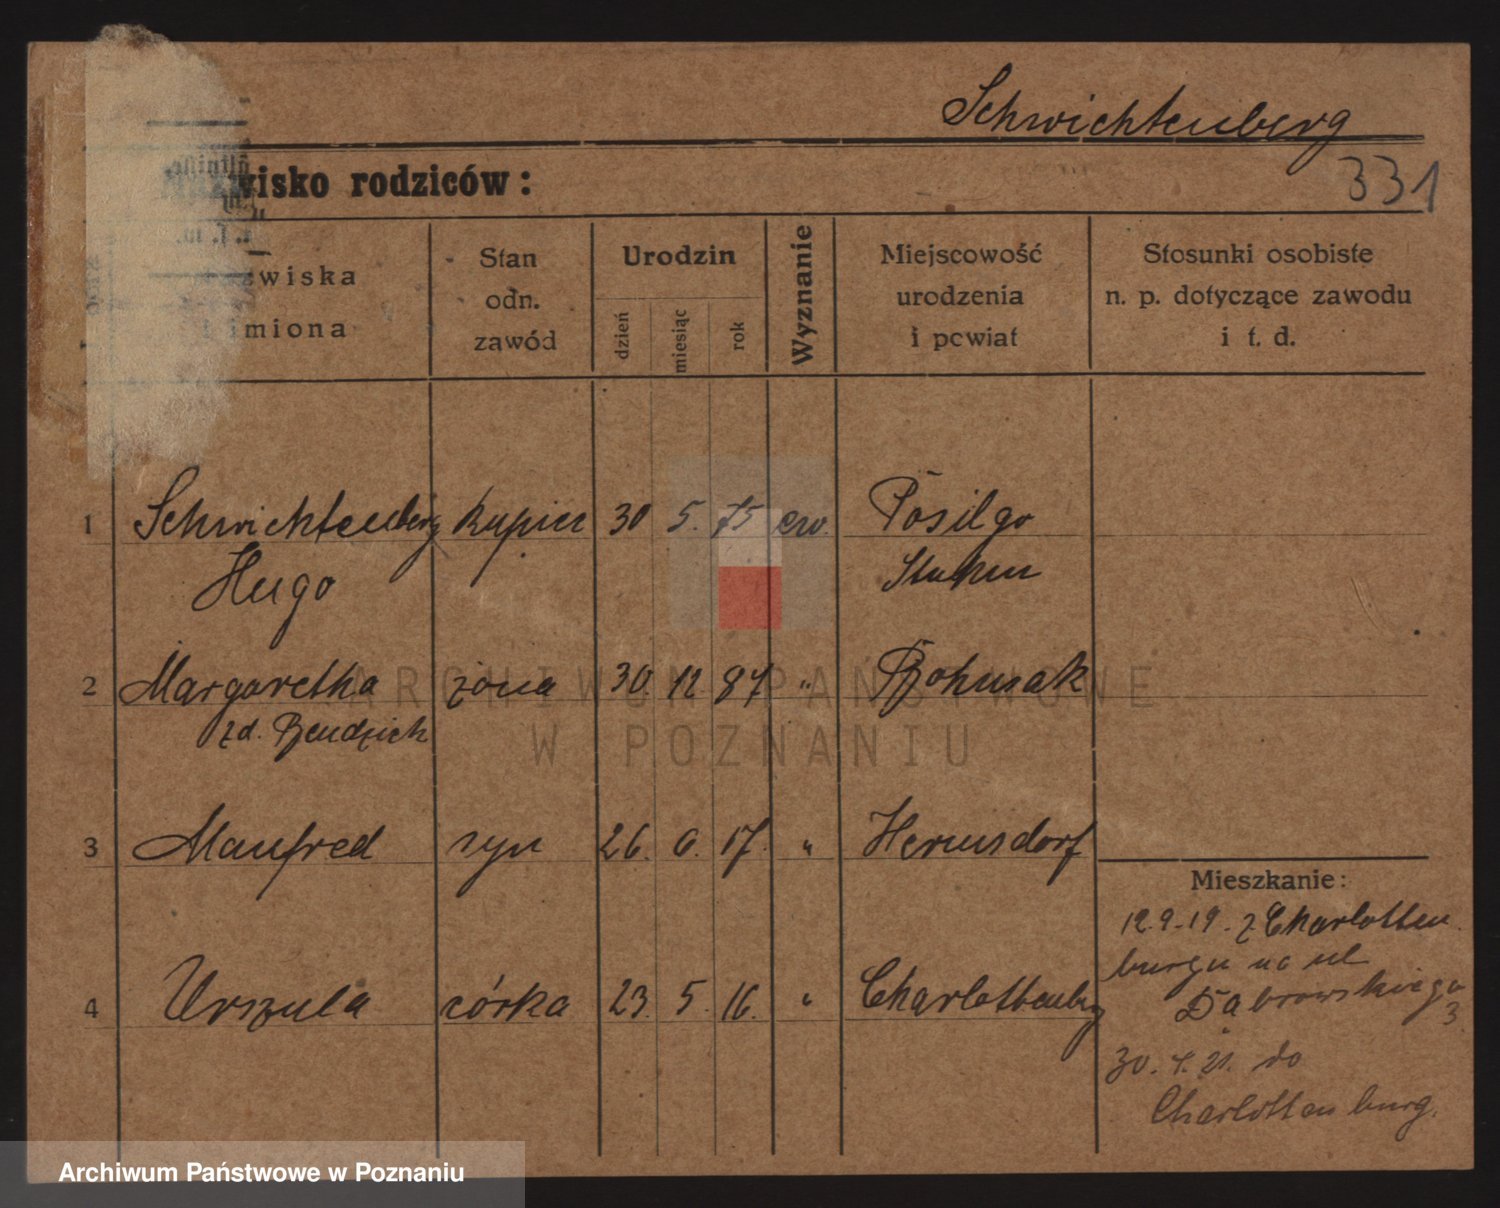 Schwichtenberg
331
wisko rodziców:
wiska
imiona
Stan
odn.
zawód
Urodzin
dzień
miesiąc
rok
Wyznanie
Miejscowość
urodzenia
i powiat
Stosunki osobiste
n. p. dotyczące zawodu
i t. d.
1 Schwichtenberg kupiec 30 5. 75 ew. Posilge
Hugo Stuhm
2 Margaretha żona 30. 12. 87 "
zd. Bendzich
3 Manfred syn 26. 6. 17. " Hermsdorf
4 Urszula córka 23. 5. 16. " Charlottenburg
Mieszkanie:
12.9.19. z Charlotten
burgu na ul
Dąbrowskiego
3.
30. 4. 21. do
Charlottenburg.
ARCHIWUM PAŃSTWOWE
W POZNANIU
Archiwum Państwowe w Poznaniu